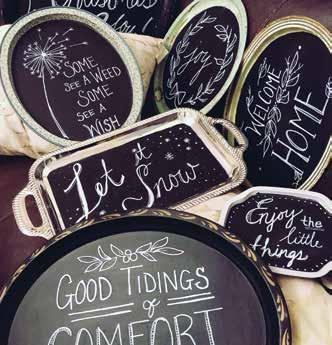 Christmas
You
SOME
SEE A WEED
SOME
SEE A
WISH
Joy
WELCOME
HOME
Let it
Snow
Enjoy the
little
things
GOOD TIDINGS
of
COMFORT